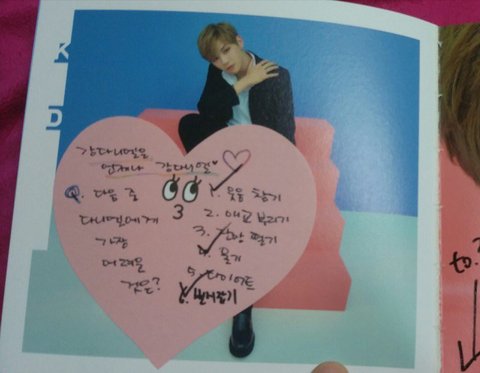 K
D
강다니엘은
언제나 강다니엘♥
Q. 다음 중
다니엘에게
가장
어려울
것은?
1. 웃음 참기
2. 애교 부리기
4. 울기
5. 다이어트
to.